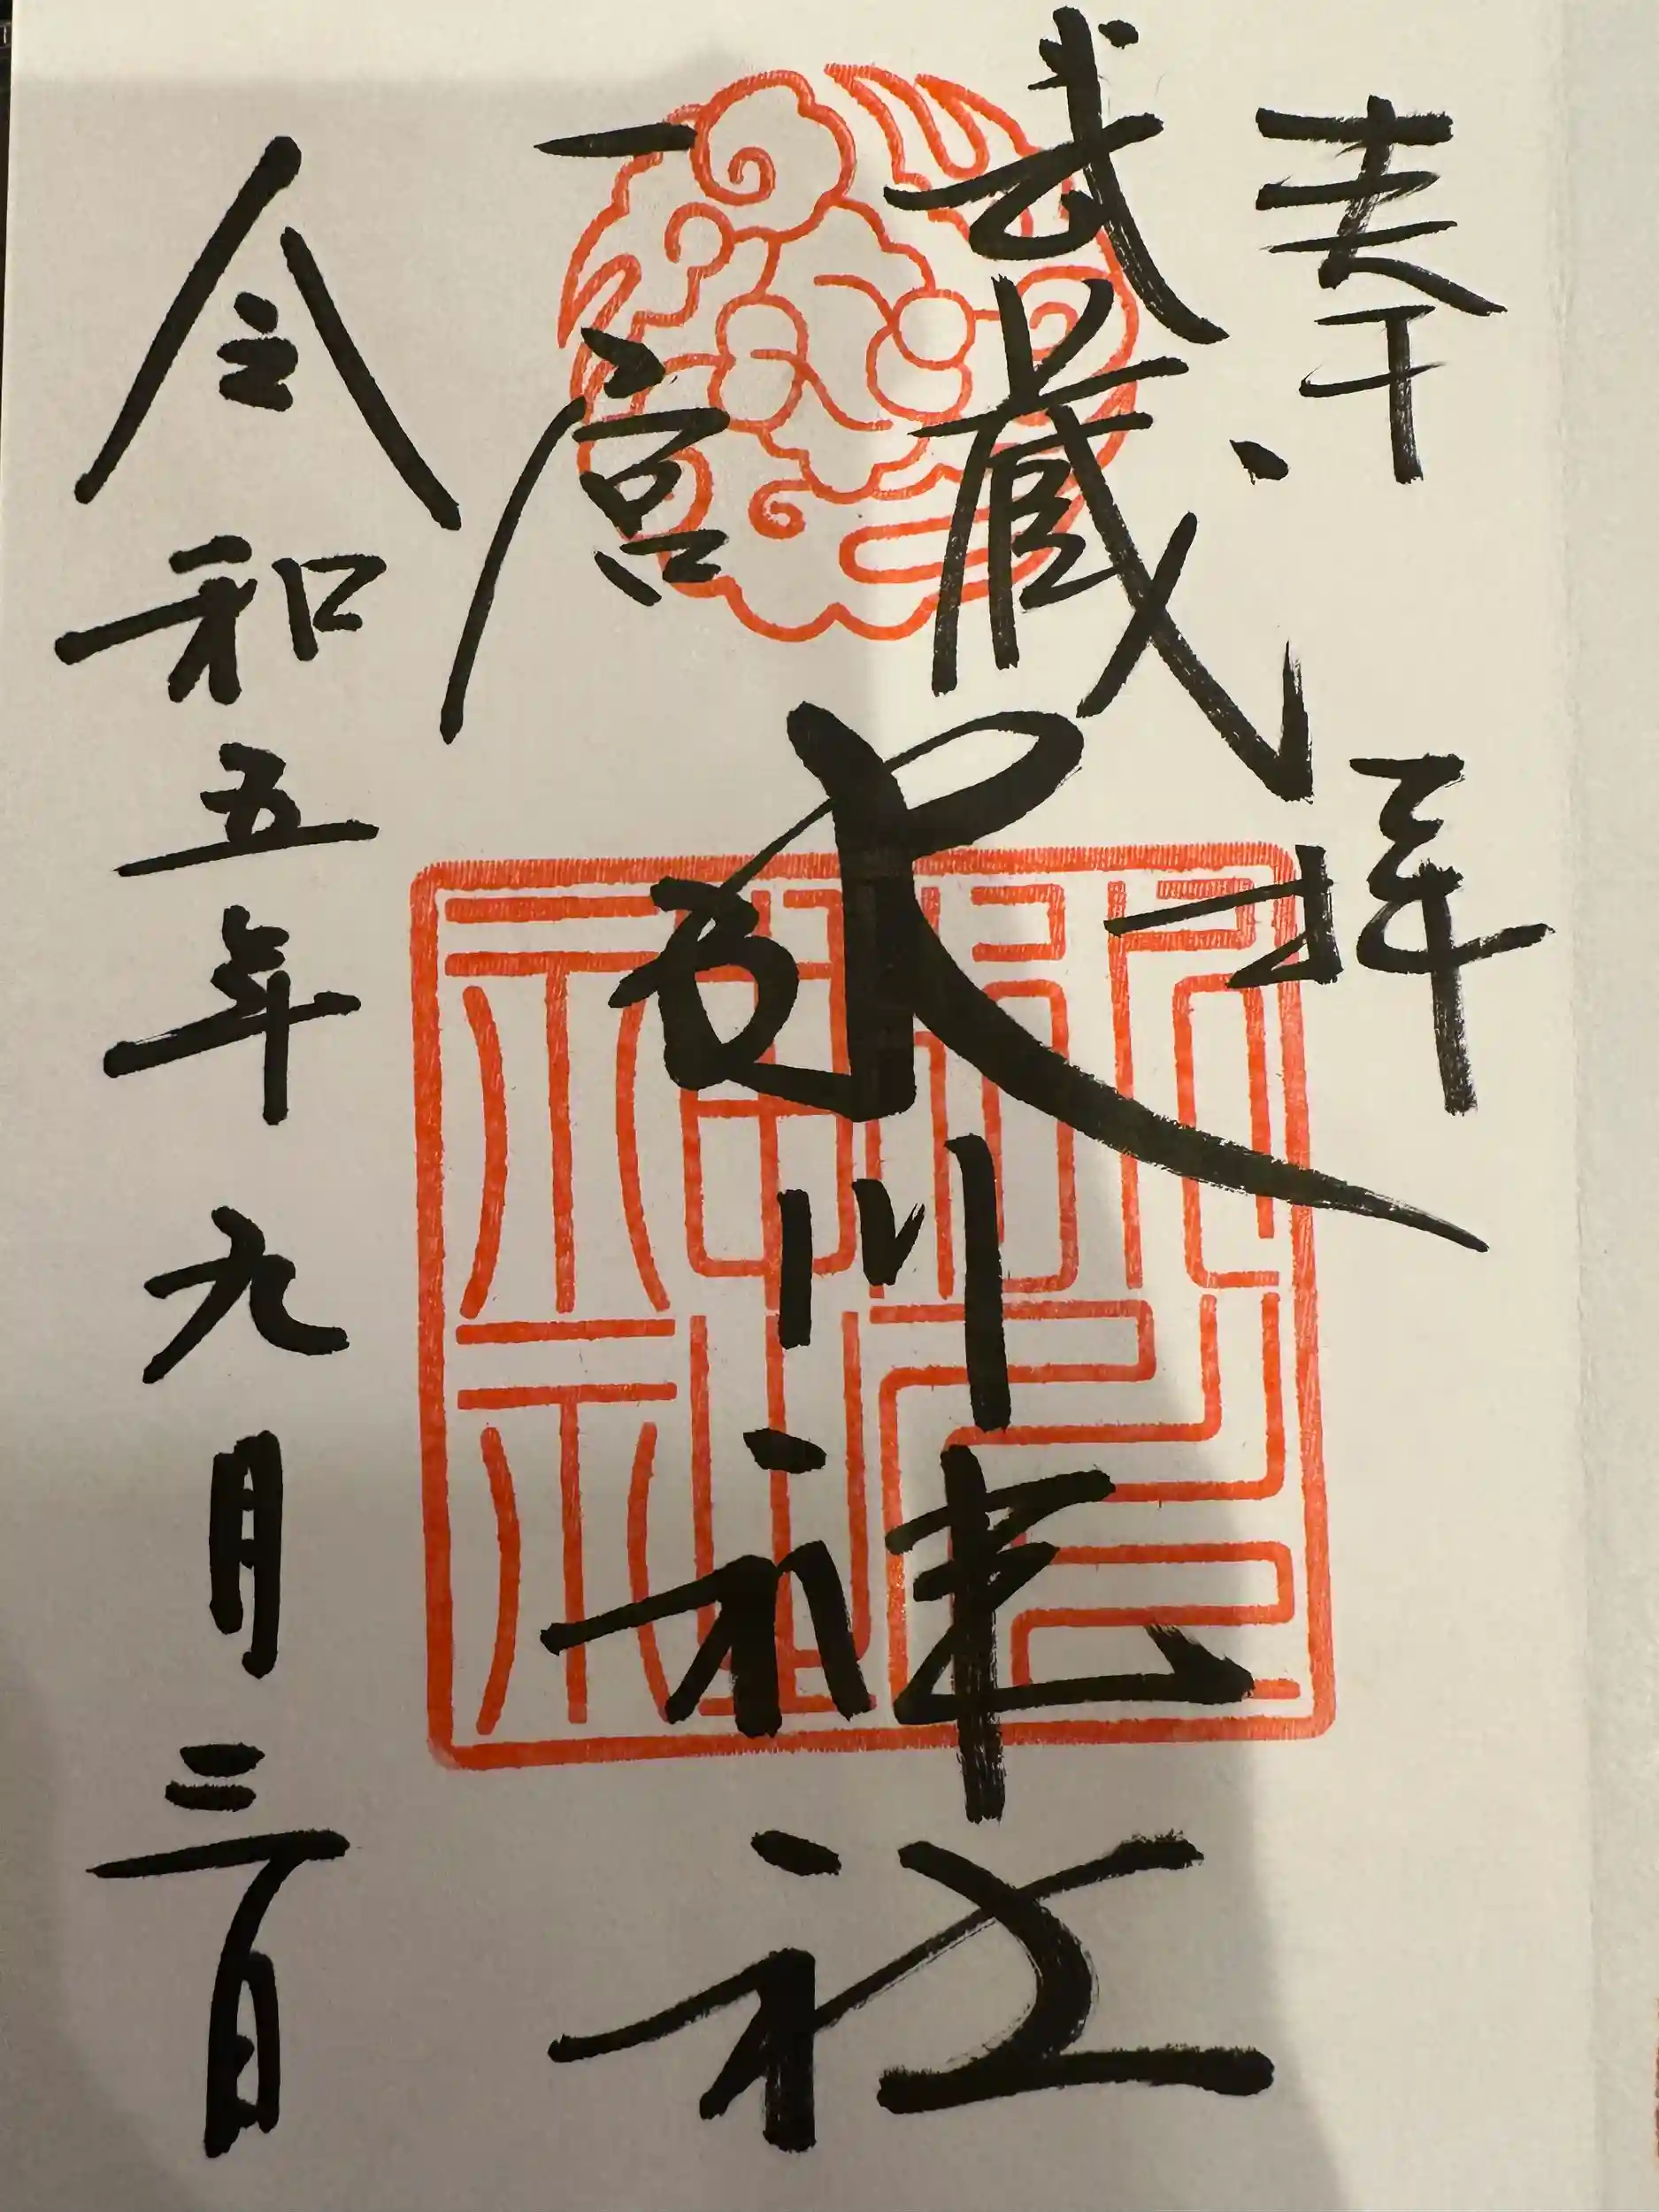 奉拝
武蔵
一宮
氷川神社
令和五年九月三日